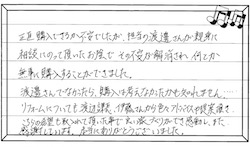 正直購入できるか不安でしたが、担当の渡邉さんが親身に
相談にのって頂いたお陰で その不安が解消され 何とか
無事に購入することができました。
渡邉さんでなかったら、購入は考えなかったかも知れません…
リフォームについても渡邉課長、伊藤さんから色々アドバイスや提案頂き
こちらの希望も取り入れて頂いた事で良い家づくりができ感動し、また
感謝しています。本当にありがとうございました。